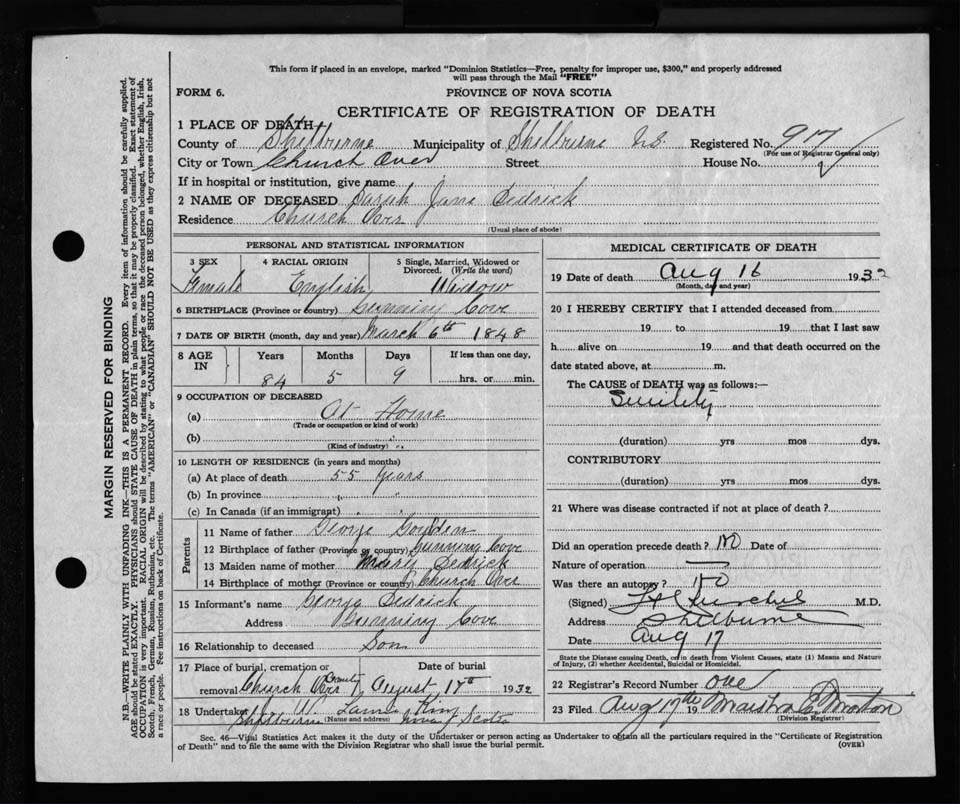 This form if placed in an envelope, marked "Dominion Statistics—Free, penalty for improper use, $300," and properly addressed
will pass through the Mail "FREE"
FORM 6.
PROVINCE OF NOVA SCOTIA
CERTIFICATE OF REGISTRATION OF DEATH
1 PLACE OF DEATH
County of Shelburne Municipality of Shelburne N.S. Registered No. 917
(For use of Registrar General only)
City or Town Church Over Street House No.
If in hospital or institution, give name
2 NAME OF DECEASED Sarah Jane Dedrick
Residence Church Over
(Usual place of abode)
PERSONAL AND STATISTICAL INFORMATION
3 SEX 4 RACIAL ORIGIN 5 Single, Married, Widowed or
Divorced. (Write the word)
Female English Widow
6 BIRTHPLACE (Province or country) Gunning Cove
7 DATE OF BIRTH (month, day and year) March 6th 1848
8 AGE IN Years Months Days If less than one day,
84 5 9 hrs. or min.
9 OCCUPATION OF DECEASED
(a) At Home
(Trade or occupation or kind of work)
(b)
(Kind of industry)
10 LENGTH OF RESIDENCE (in years and months)
(a) At place of death 55 years
(b) In province " "
(c) In Canada (if an immigrant)
Parents
11 Name of father George Goulden
12 Birthplace of father (Province or country) Gunning Cove
13 Maiden name of mother Mary Dedrick
14 Birthplace of mother (Province or country) Church Over
15 Informant's name George Dedrick
Address Gunning Cove
16 Relationship to deceased Son
17 Place of burial, cremation or Date of burial
removal Church Over Cemetery August 17th 1932
18 Undertaker King
(Name and address)
Shelburne Nova Scotia
MEDICAL CERTIFICATE OF DEATH
19 Date of death Aug 16 1932
(Month, day and year)
20 I HEREBY CERTIFY that I attended deceased from
19 to 19 that I last saw
h alive on 19 and that death occurred on the
date stated above, at m.
The CAUSE of DEATH was as follows:—
Senility
(duration) yrs mos dys.
CONTRIBUTORY
(duration) yrs mos dys.
21 Where was disease contracted if not at place of death?
Did an operation precede death? no Date of
Nature of operation —
Was there an autopsy? no
(Signed) M.D.
Address Shelburne
Date Aug 17
State the Disease causing Death, or in death from Violent Causes, state (1) Means and Nature
of Injury, (2) whether Accidental, Suicidal or Homicidal.
22 Registrar's Record Number one
23 Filed Aug 17th 19 Morton
(Division Registrar)
Sec. 46—Vital Statistics Act makes it the duty of the Undertaker or person acting as Undertaker to obtain all the particulars required in the "Certificate of Registration
of Death" and to file the same with the Division Registrar who shall issue the burial permit.
(OVER)
MARGIN RESERVED FOR BINDING
N.B.—WRITE PLAINLY WITH UNFADING INK—THIS IS A PERMANENT RECORD. Every item of information should be carefully supplied.
AGE should be stated EXACTLY. PHYSICIANS should STATE CAUSE OF DEATH in plain terms, so that it may be properly classified. Exact statement of
OCCUPATION is very important. RACIAL ORIGIN will be described by stating to what people or race the deceased person belonged, whether English, Irish,
Scotch, French, German, Russian, Ruthenian, etc. The terms "AMERICAN" or "CANADIAN" SHOULD NOT BE USED as they express citizenship but not
a race or people. Fee instructions on back of Certificate.